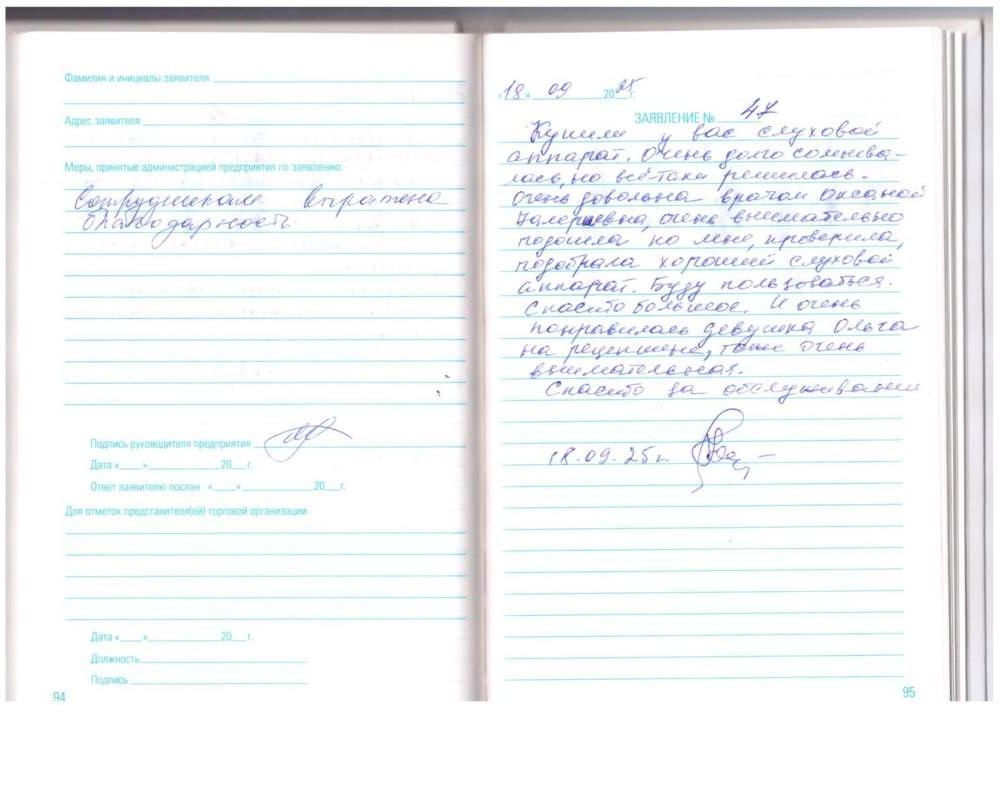 Фамилия и инициалы заявителя
Адрес заявителя
Меры, принятые администрацией предприятия по заявлению:
Сотрудникам выражена
благодарность
Подпись руководителя предприятия
Дата «___»____________20___г.
Ответ заявителю послан «___»____________20___г.
Для отметок представителя(ей) торговой организации
Дата «___»____________20___г.
Должность
Подпись
94
«18» 09 2025г.
ЗАЯВЛЕНИЕ № 47
Купили у вас слуховой
аппарат. Очень долго сомнева-
лась, но всё таки решилась.
Очень довольна врачом Оксаной
Валериевна, очень внимательно
подошла ко мне, проверила,
подобрала хороший слуховой
аппарат. Буду пользоваться.
Спасибо большое. И очень
понравилась девушка Ольга
на рецепшене, тоже очень
внимательная.
Спасибо за обслуживание
18.09.25г.
95